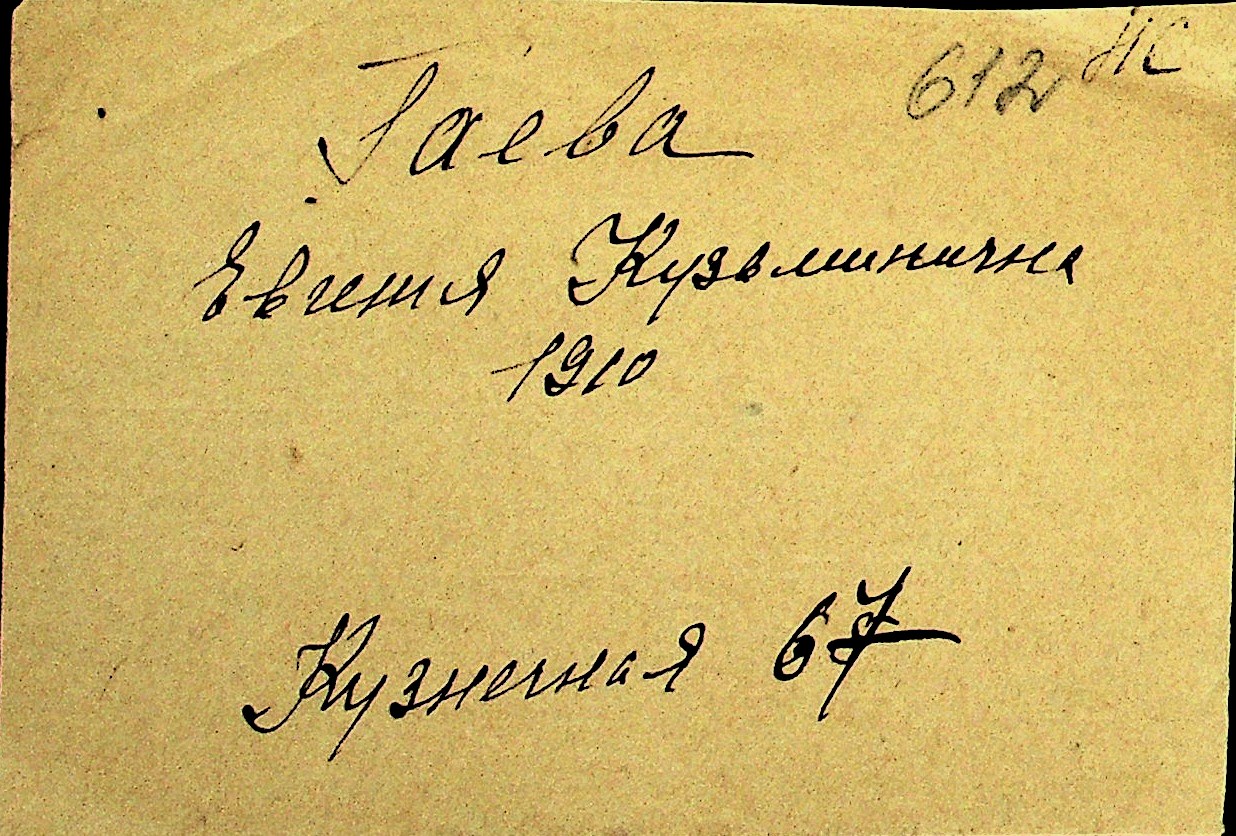 612
Гаева
Евгения Кузьминична
1910
Кузнечная 67